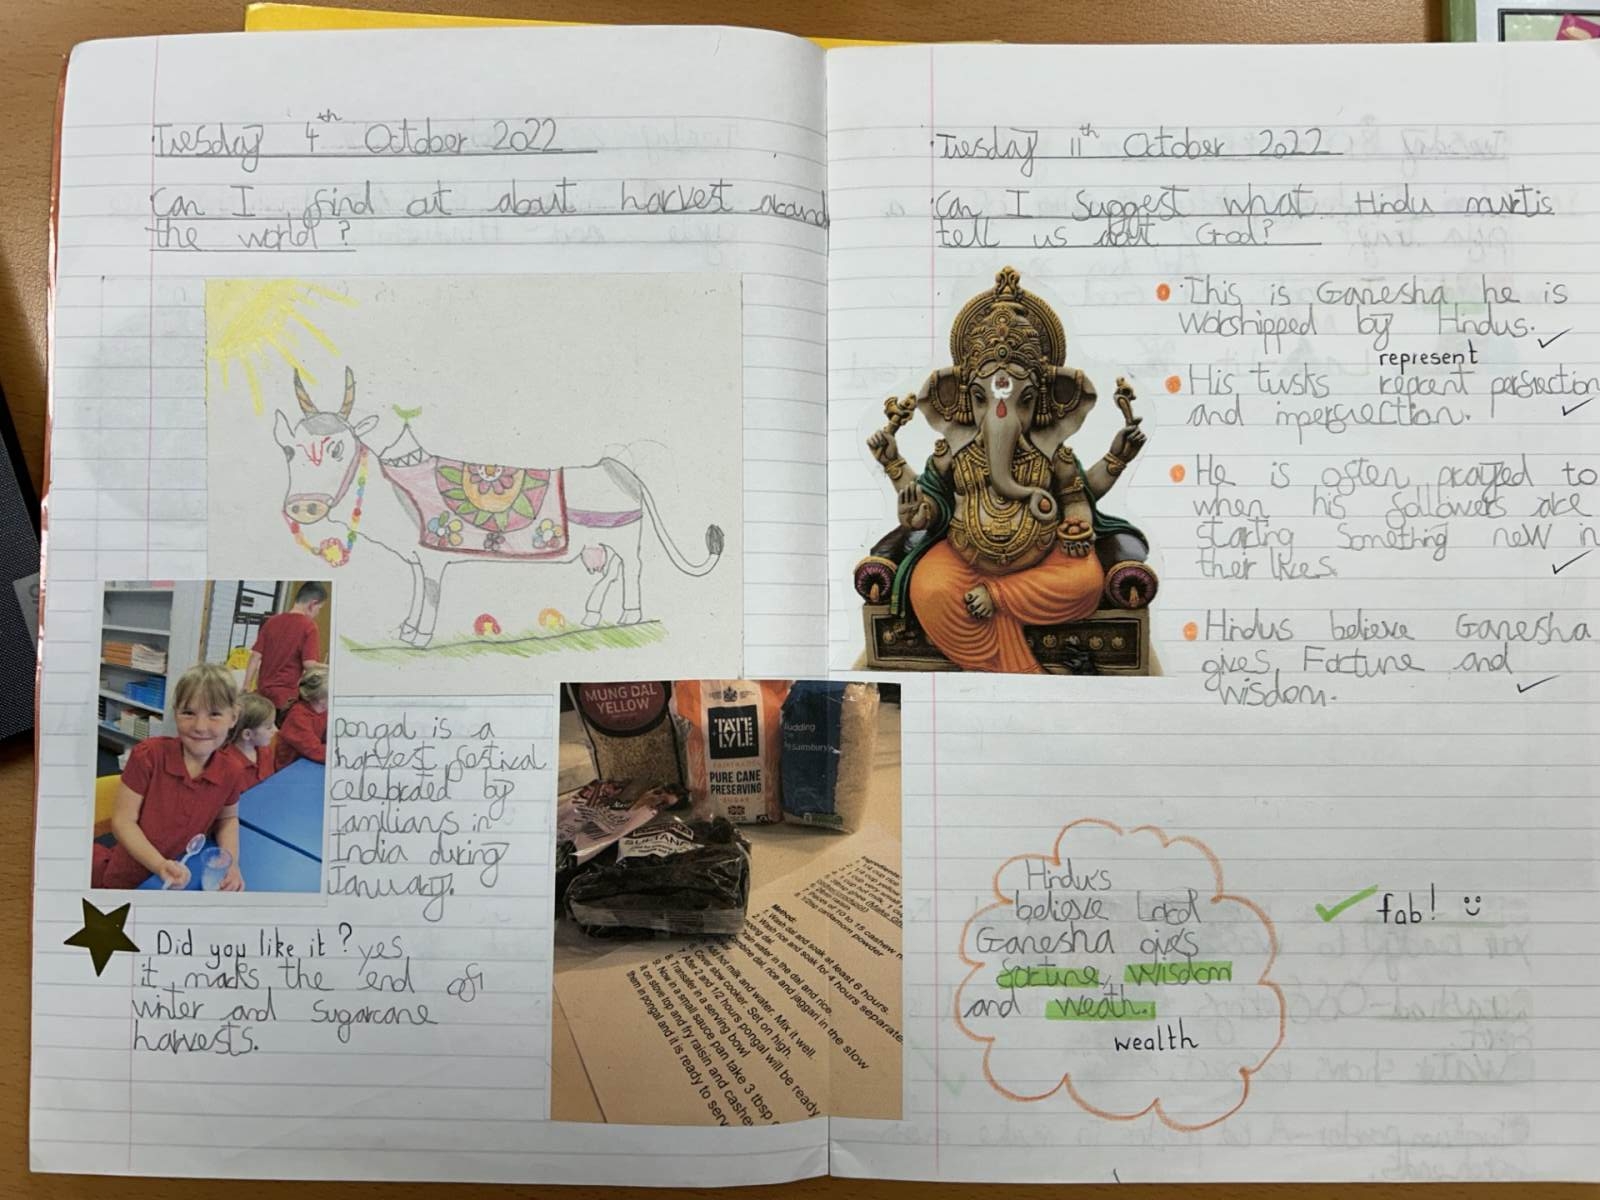 Tuesday 4th October 2022
Can I find out about harvest around
the world?
Pongal is a
harvest festival
celebrated by
Tamilians in
India during
January.
Did you like it? yes
it marks the end of
winter and Sugarcane
harvests.
MUNG DAL
YELLOW
TATE
LYLE
FAIRTRADE
PURE CANE
PRESERVING
SUGAR
Pudding
Sainsbury's
SULTANAS
Ingredients:
1/4 cup rice
10 to 15 cashew
1/2tsp cinnamom powder
Method:
1. Wash dal and soak at least 6 hours.
2. Wash rice and soak for 4 hours separate
moong dal.
water in the dal and rice.
Combine dal, rice and jaggari in the slow
cooker.
Add hot milk and water. Mix it well.
6. Cover slow cooker. Set on high.
7. After 2 and 1/2 hours pongal will be ready
8. Transfer in a serving bowl
9. Now in a small sauce pan take 3 tbsp
it on stove top and fry raisin and cashew
them in pongal and it is ready to serv
Tuesday 11th October 2022
Can I suggest what Hindu murtis
tell us about God?
This is Ganesha, he is
worshipped by Hindus.
represent
His tusks repcent perfrection
and imperfrection.
He is often prayed to
when his followers are
starting something new in
ther lives.
Hindus believe Ganesha
gives, Fortune and
wisdom.
Hindus
believe Lord
Ganesha gives
fortune, wisdom
and weath.
wealth
fab!